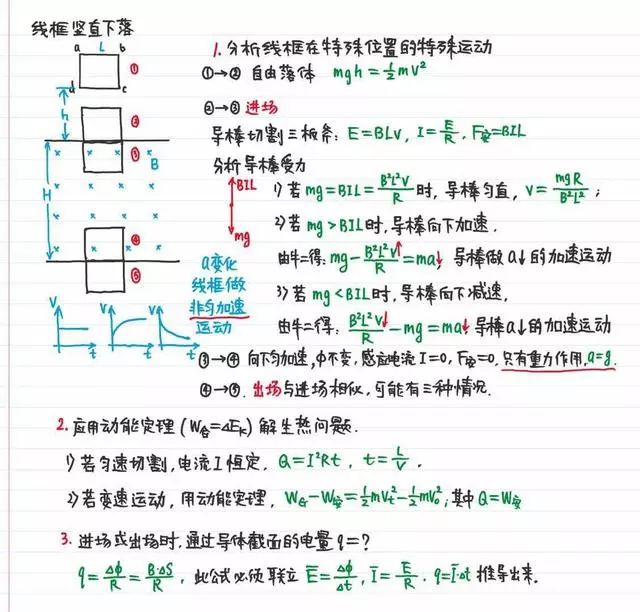 线框竖直下落
a L b
①
d c
h
②
③
B
H
④
⑤
a变化
线框做
非匀加速
运动
V t V t V t
1. 分析线框在特殊位置的特殊运动
①→② 自由落体 mgh=½mV²
②→③ 进场
导棒切割三板斧: E=BLV, I=E/R, F安=BIL
分析导棒受力
BIL
mg
1) 若mg=BIL=B²L²V/R时, 导棒匀直, V=mgR/B²L²;
2) 若mg>BIL时, 导棒向下加速.
由牛二得: mg-B²L²V↑/R=ma↓, 导棒做a↓的加速运动
3) 若mg<BIL时, 导棒向下减速,
由牛二得: B²L²V↓/R-mg=ma↓, 导棒a↓的加速运动
③→④ 向下匀加速, φ不变, 感应电流I=0, F安=0, 只有重力作用, a=g.
④→⑤. 出场与进场相似, 可能有三种情况.
2. 应用动能定理(W合=ΔEk)解生热问题.
1) 若匀速切割, 电流I恒定, Q=I²Rt, t=L/V.
2) 若变速运动, 用动能定理, WG-W安=½mVt²-½mV0²; 其中Q=W安
3. 进场或出场时, 通过导体截面的电量q=?
q=Δφ/R=B·ΔS/R, 此公式必须联立 E̅=Δφ/Δt, I̅=E̅/R, q=I̅·Δt 推导出来.